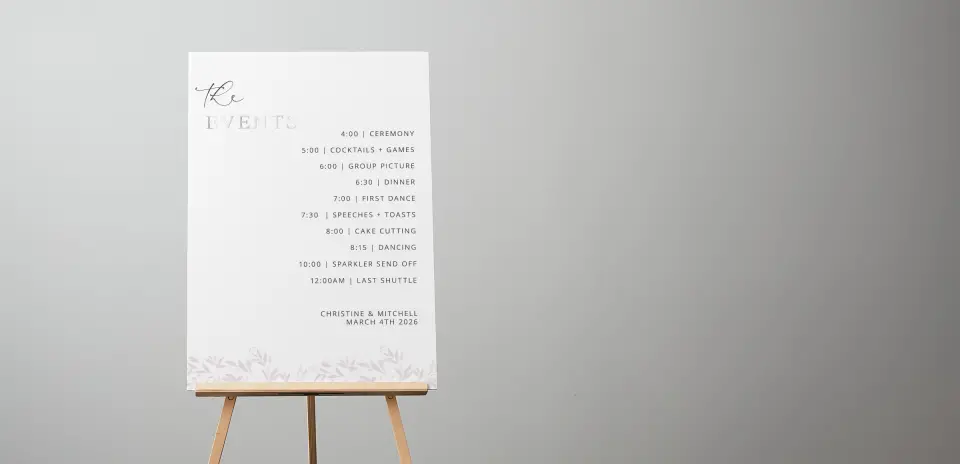 the
EVENTS
4:00 | CEREMONY
5:00 | COCKTAILS + GAMES
6:00 | GROUP PICTURE
6:30 | DINNER
7:00 | FIRST DANCE
7:30 | SPEECHES + TOASTS
8:00 | CAKE CUTTING
8:15 | DANCING
10:00 | SPARKLER SEND OFF
12:00AM | LAST SHUTTLE
CHRISTINE & MITCHELL
MARCH 4TH 2026